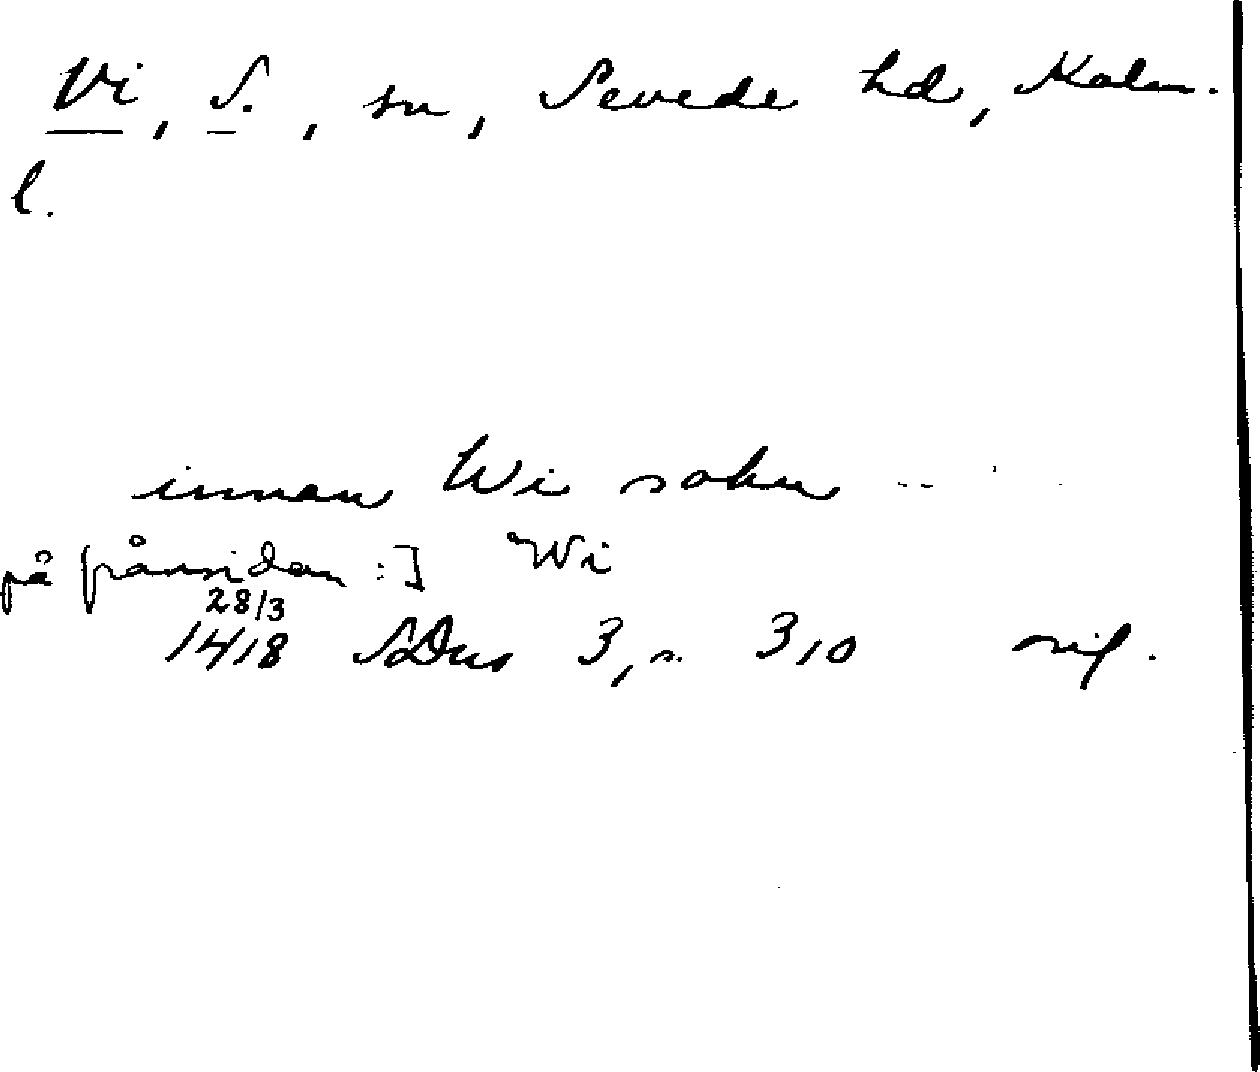 Vi, S., sn, Sevede hd, Kalm.
l.
innan Wi sokn ..
på frånsidan :] Wi
28/3
1418 SDns 3, s. 310 orig.